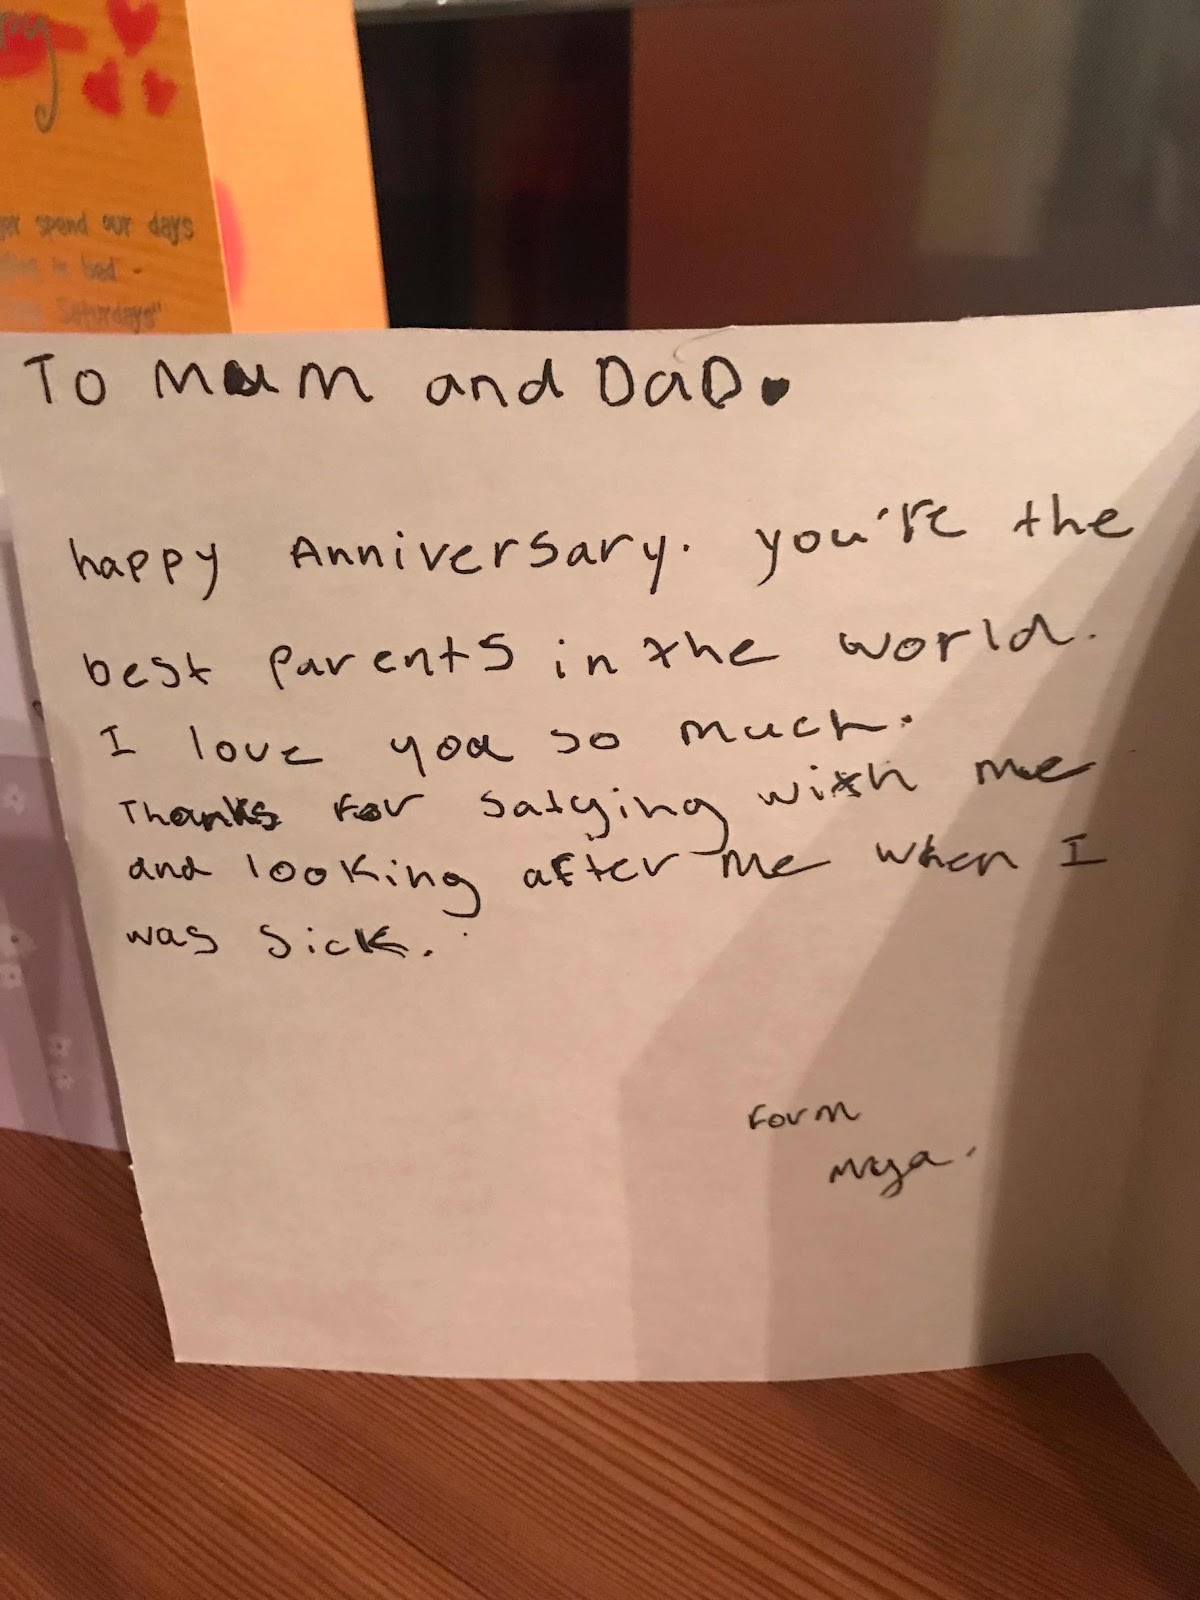 spend our days
in bed
Saturdays"
To Mum and DaD.
happy Anniversary. you're the
best parents in the world.
I love you so much.
Thanks for satying with me
and looking after me when I
was sick.
Form
Mya.